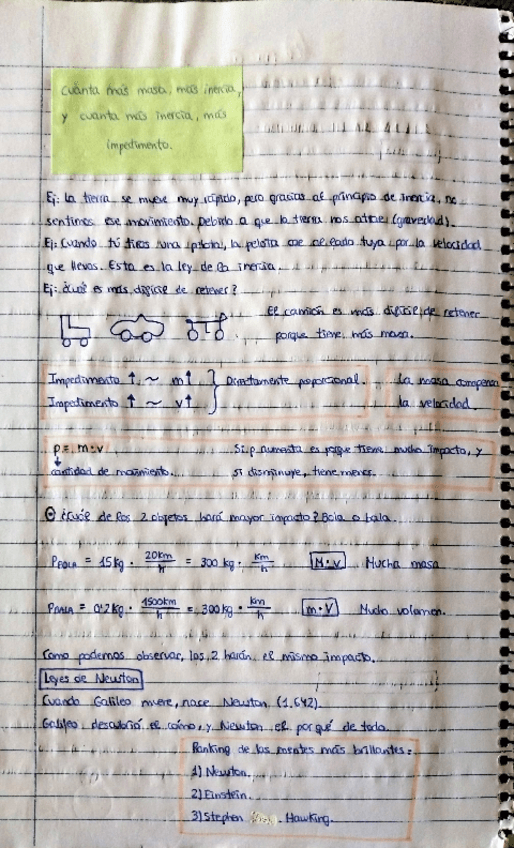 cuanta más masa, más inercia,
y cuanta más inercia, más
impedimento.
Ej: La tierra se mueve muy rápido, pero gracias al principio de inercia, no
sentimos ese movimiento. Debido a que la tierra nos atrae (gravedad).
Ej: Cuando tú tiras una pelota, la pelota cae al lado tuya por la velocidad
que llevas. Esta es la ley de la inercia.
Ej: ¿Cuál es más difícil de retener?
El camión es más difícil de retener
porque tiene más masa.
Impedimento ↑ ~ m↑ } Directamente proporcional.
Impedimento ↑ ~ v↑
La masa compensa
la velocidad.
p = m·v
cantidad de movimiento.
Si p aumenta es porque tiene mucho impacto, y
si disminuye, tiene menos.
¿Cuál de los 2 objetos hará mayor impacto? Bola o bala.
P = 15 kg · 20km/h = 300 kg · km/h M·v Mucha masa
PBALA = 0'2 kg · 1500km/h = 300 kg · km/h m·V Mucho volumen.
Como podemos observar, los 2 harán el mismo impacto.
Leyes de Newton
Cuando Galileo muere, nace Newton (1.642).
Galileo descubrió el cómo, y Newton el por qué de todo.
Ranking de las mentes más brillantes:
1) Newton.
2) Einstein.
3) Stephen Hawking.